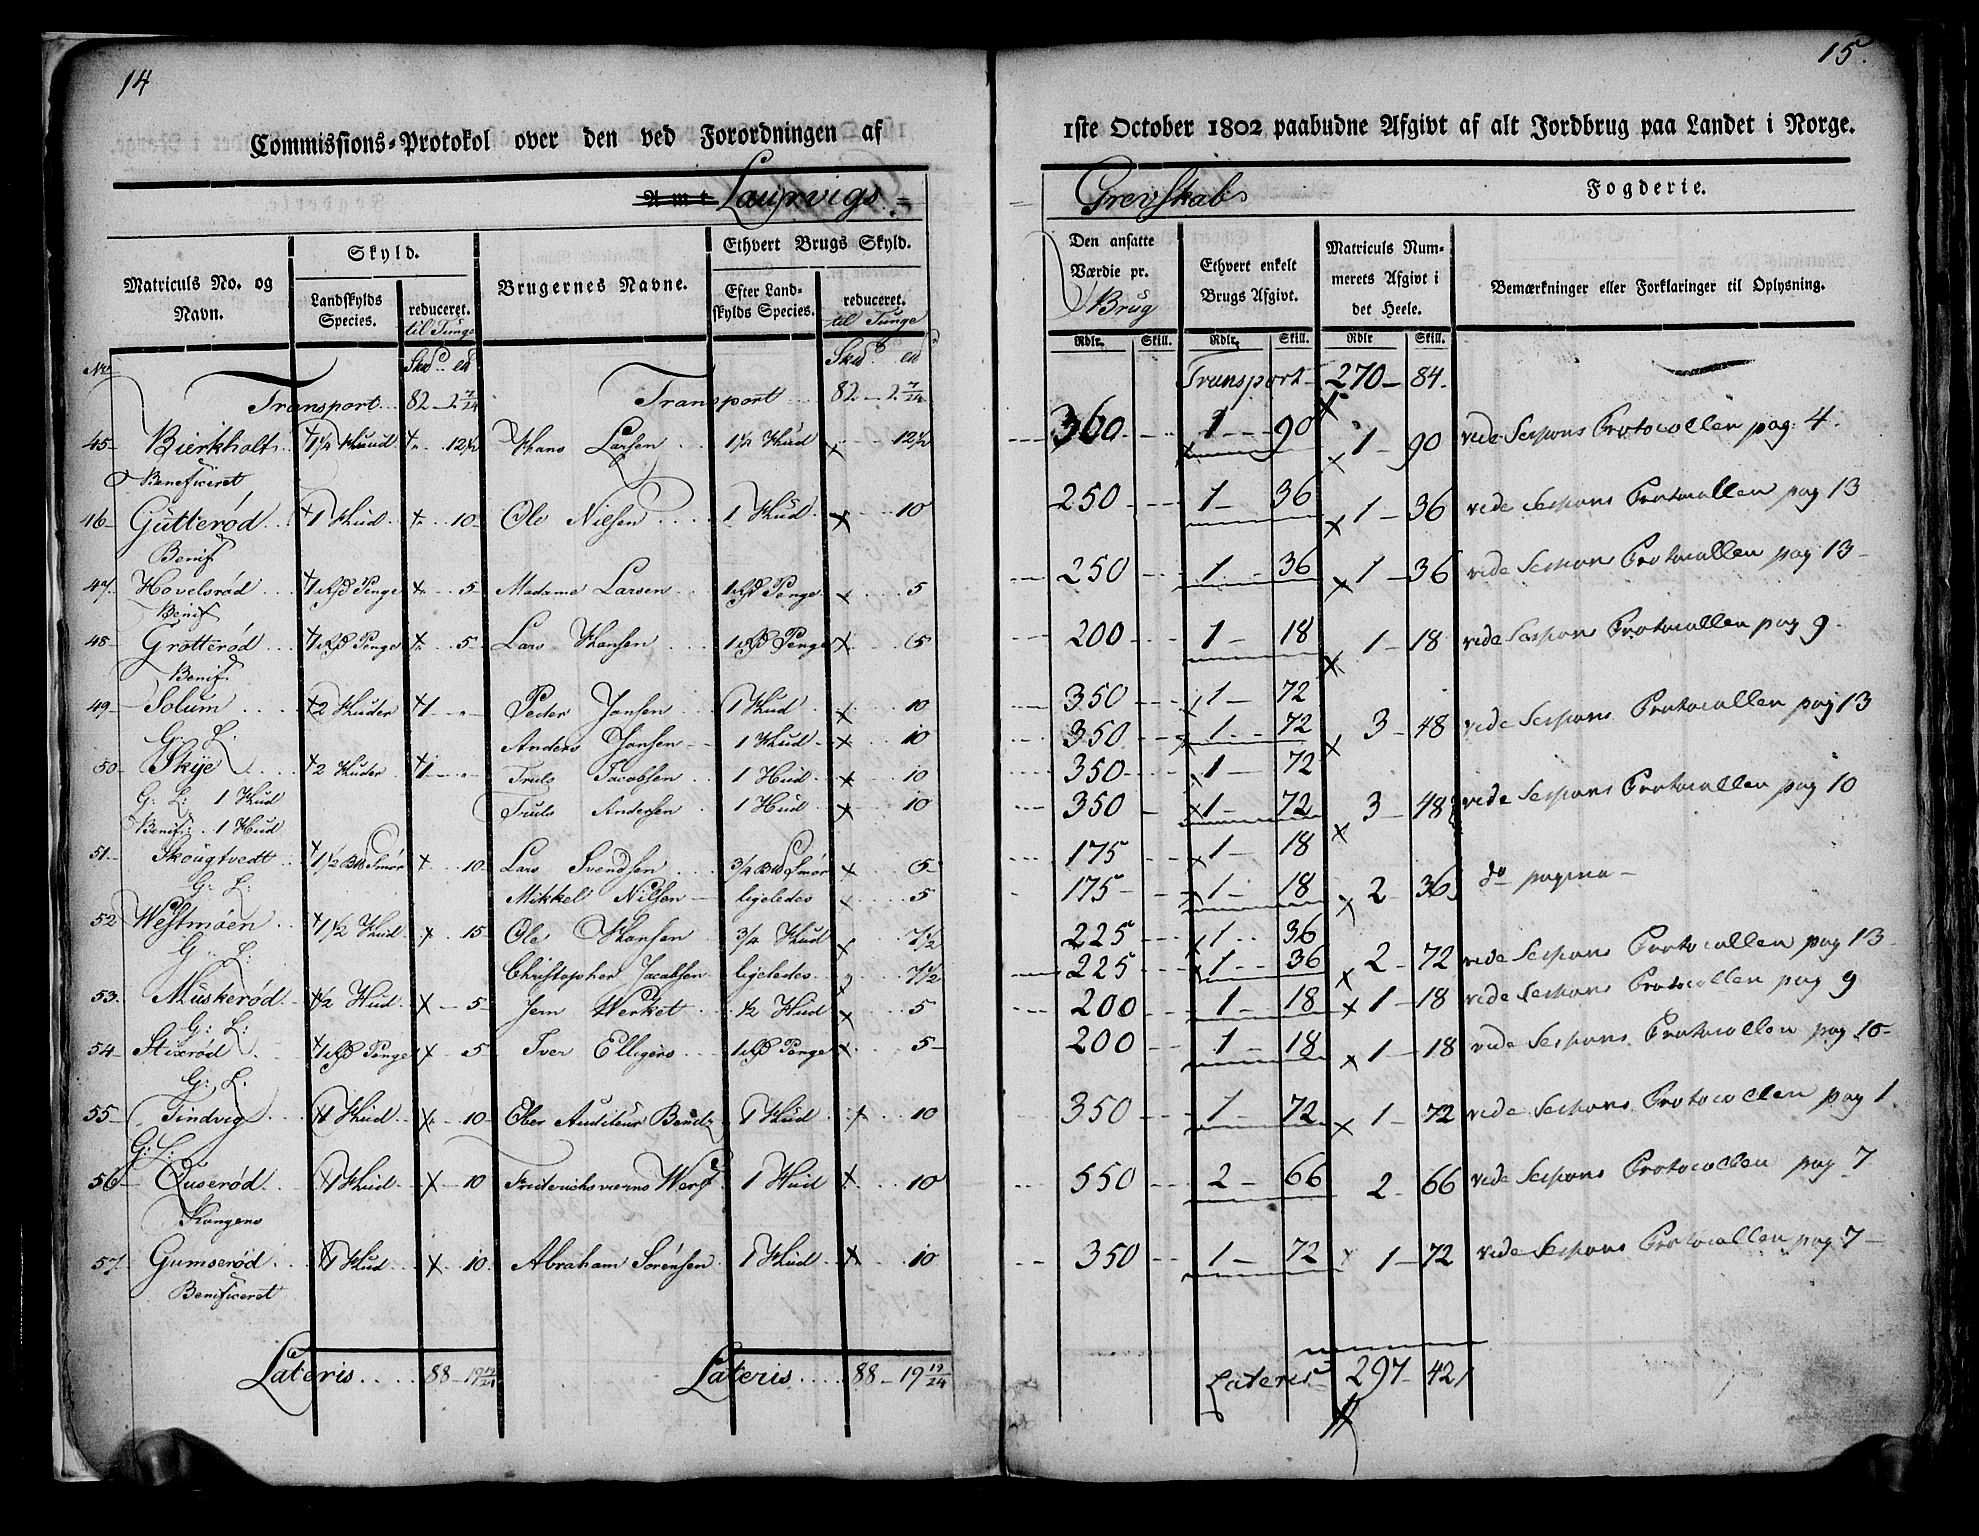 14
Commissions-Protokol over den ved Forordningen af
Amt Laurvigs
Matriculs No. og Navn.
Skyld.
Landskylds Species.
reduceret. til Tunge
Brugernes Navne.
Ethvert Brugs Skyld.
Efter Landskylds Species.
reduceret. til Tunge
No
Transport 82 - 2 7/24 Transport 82 - 2 7/24
45 Bierkholt 1 1/4 Huud 12 1/2 Hans Larsen 1 1/4 Hud 12 1/2
Beneficeret
46 Gutterød 1 Hud 10 Ole Nilsen 1 Hud 10
Benif
47 Hovelsrød 1 Penge 5 Madame Larsen 1 Penge 5
Benif
48 Grotterød 1 Penge 5 Lars Hansen 1 Penge 5
Benif
49 Solum 2 Huder 1 Peder Jansen 1 Hud 10
G: L: Anders Hansen 1 Hud 10
50 Skije 2 Huder 1 Truls Jacobsen 1 Hud 10
G: L: 1 Hud Truls Andersen 1 Hud 10
Benif: 1 Hud
51 Skougtvedt 1 1/2 Smør 10 Lars Svendsen 3/4 Smør 5
G: L: Mikkel Nilsen ligeledes 5
52 Westmøen 1 1/2 Hud 15 Ole Hansen 3/4 Hud 7 1/2
G: L: Christopher Jacobsen ligeledes 7 1/2
53 Muskerød 1/2 Hud 5 Jern Werket 1/2 Hud 5
G: L:
54 Stixrød 1 Penge 5 Iver Elligers 1 Penge 5
G: L:
55 Tindvig 1 Hud 10 Ober Auditeur Bendz 1 Hud 10
G: L:
56 Ouserød 1 Hud 10 Friderichsværns Werf 1 Hud 10
Kongens
57 Gumserød 1 Hud 10 Abraham Sørensen 1 Hud 10
Benificeret
Lateris 88 - 19 19/24 Lateris 88 - 19 19/24
15
1ste October 1802 paabudne Afgivt af alt Jordbrug paa Landet i Norge.
Grevskab Fogderie.
Den ansatte Værdie pr. Brug
Ethvert enkelt Brugs Afgivt.
Matriculs Nummerets Afgivt i det Heele.
Bemærkninger eller Forklaringer til Oplysning.
Rdlr. Skill. Rdlr. Skill. Rdlr Skill.
Transport 270 - 84
360 1 - 90 1 - 90 vide Sessions Protocollen pag: 4.
250 1 - 36 1 - 36 vide Sessions Protocollen pag 13
250 1 - 36 1 - 36 vide Sessions Protocollen pag 13
200 1 - 18 1 - 18 vide Sessions Protocollen pag 9
350 1 - 72
350 1 - 72 3 - 48 vide Sessions Protocollen pag 13
350 1 - 72
350 1 - 72 3 - 48 vide Sessions Protocollen pag 10
175 1 - 18
175 1 - 18 2 - 36 do pagina
225 1 - 36
225 1 - 36 2 - 72 vide Sessions Protocollen pag 13
200 1 - 18 1 - 18 vide Sessions Protocollen pag 9
200 1 - 18 1 - 18 vide Sessions Protocollen pag 10
350 1 - 72 1 - 72 vide Sessions Protocollen pag 1
550 2 - 66 2 - 66 vide Sessions Protocollen pag 7
350 1 - 72 1 - 72 vide Sessions Protocollen pag 7
Lateris 297 - 42